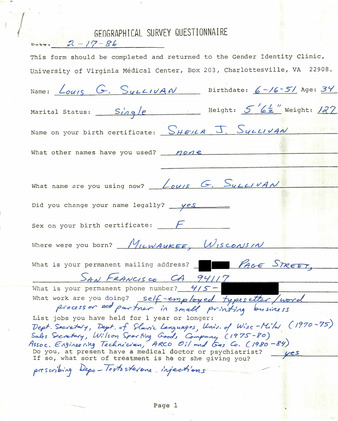 GEOGRAPHICAL SURVEY QUESTIONNAIRE
Date: 2-17-86
This form should be completed and returned to the Gender Identity Clinic,
University of Virginia Medical Center, Box 203, Charlottesville, VA 22908.
Name: Louis G. Sullivan Birthdate: 6-16-51 Age: 34
Marital Status: Single Height: 5'6½" Weight: 127
Name on your birth certificate: Sheila J. Sullivan
What other names have you used? none
What name are you using now? Louis G. Sullivan
Did you change your name legally? yes
Sex on your birth certificate: F
Where were you born? Milwaukee, Wisconsin
What is your permanent mailing address? Page Street,
San Francisco CA 94117
What is your permanent phone number? 415-
What work are you doing? self-employed typesetter/word
processor and partner in small printing business
List jobs you have held for 1 year or longer:
Dept. Secretary, Dept. of Slavic Languages, Univ. of Wisc-Milw (1970-75)
Sales Secretary, Wilson Sporting Goods Company (1975-80)
Assoc. Engineering Technician, ARCO Oil and Gas Co. (1980-84)
Do you, at present have a medical doctor or psychiatrist? yes
If so, what sort of treatment is he or she giving you?
prescribing Depo-Testosterone injections
Page 1